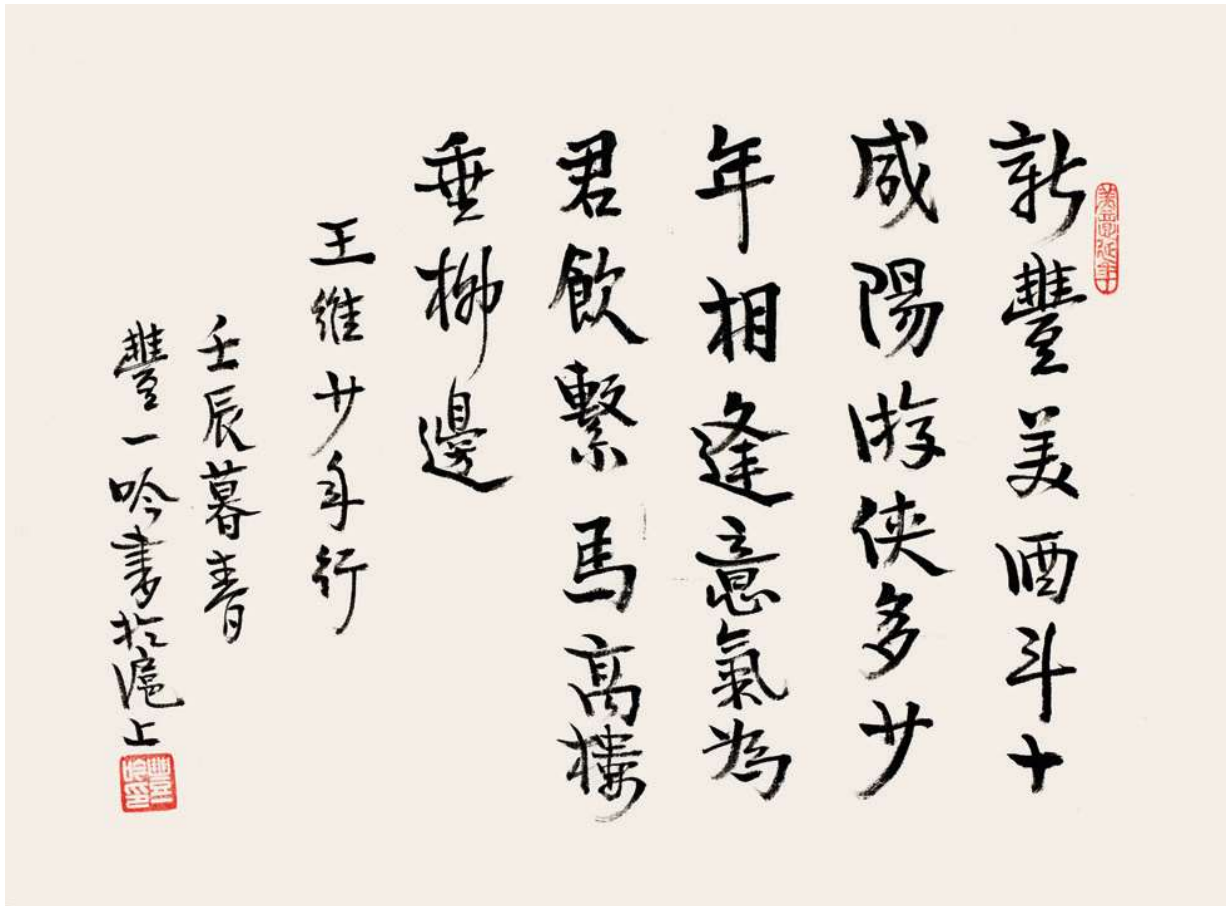 美意延年
新豐美酒斗十
咸陽游侠多少
年相逢意氣為
君飲繫馬高樓
垂柳邊
王維少年行
壬辰暮春
豐一吟書於滬上
豐一吟印